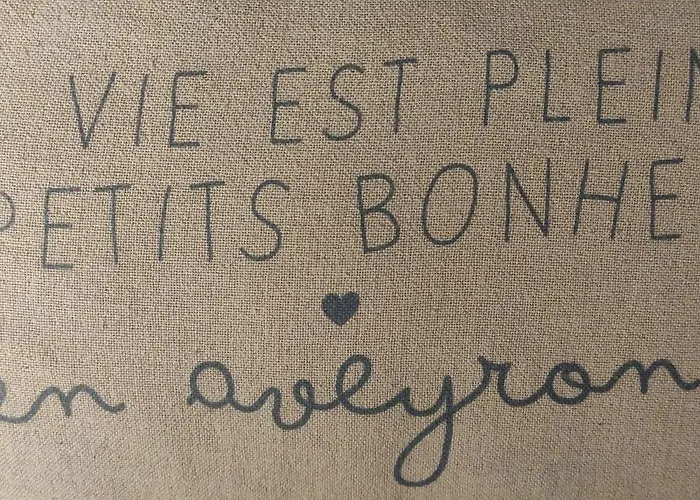 VIE EST PLEIN
PETITS BONHE
en aveyron